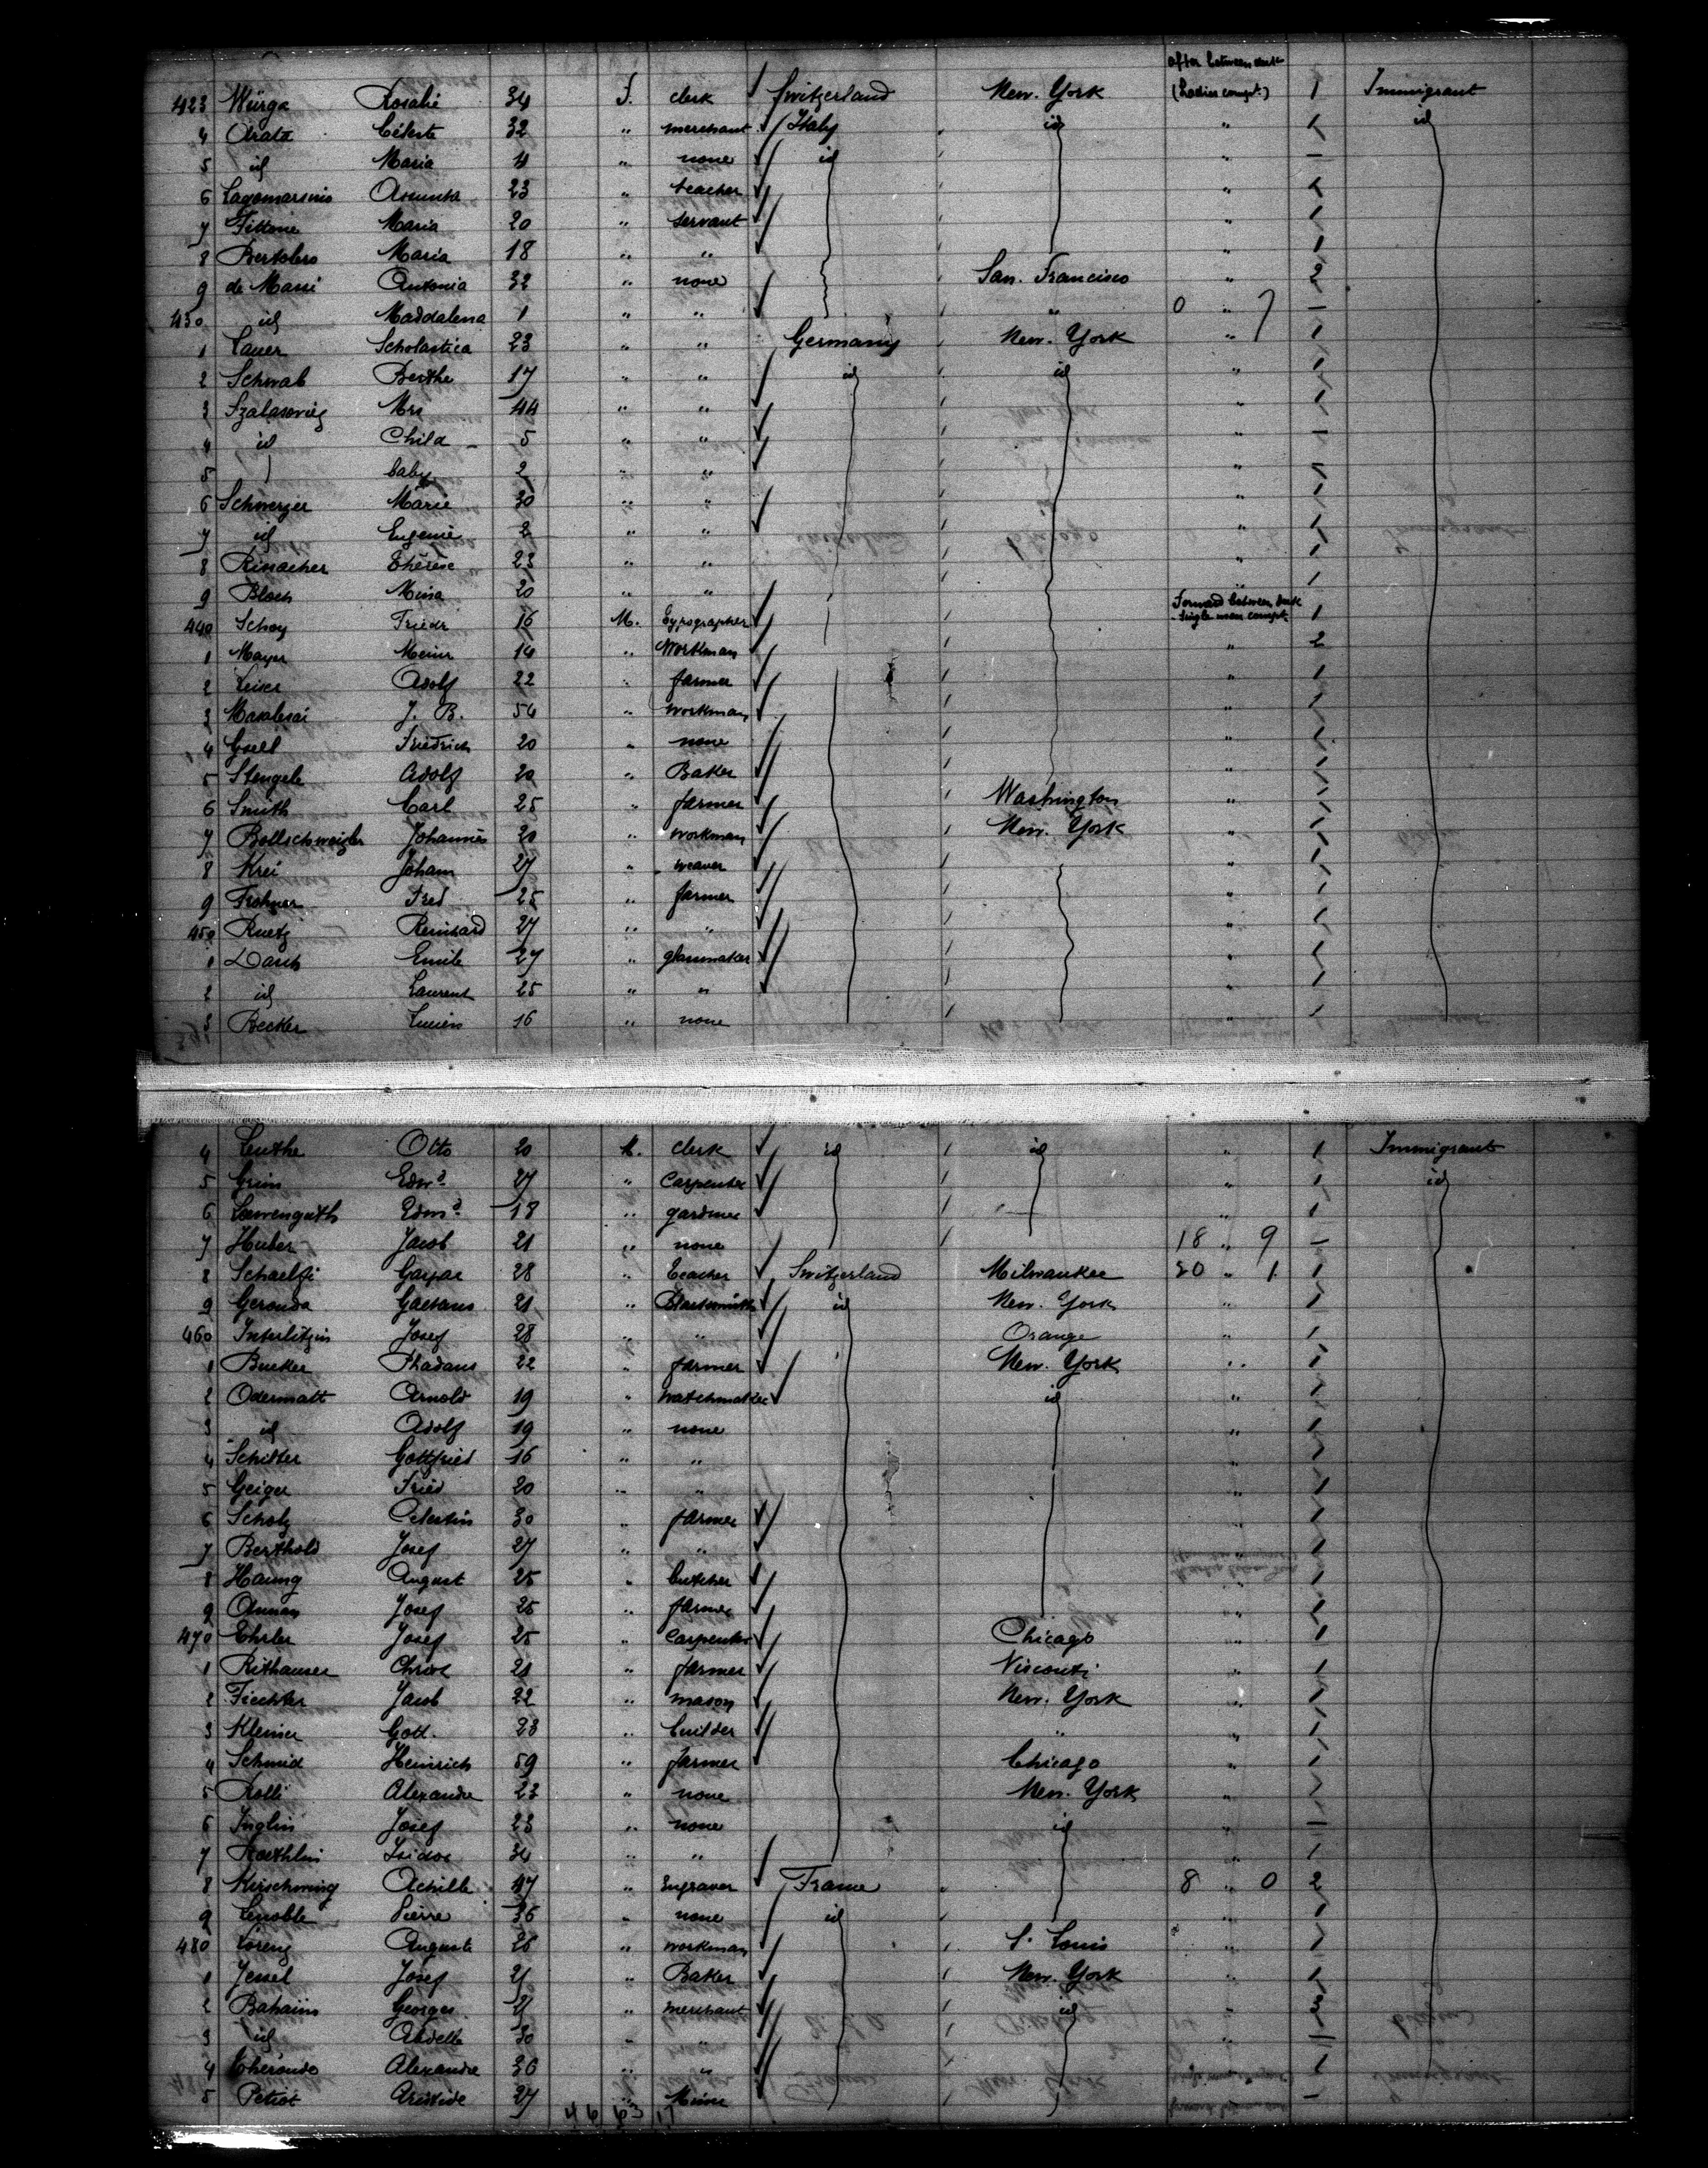 after between deck
423 Würga Rosalie 34 F. clerk Switzerland New. York (Ladies compt.) 1 Immigrant
4 Arata Céleste 32 " merchant Italy id " 1 id
5 id Maria 4 " none id " –
6 Lagomarsino Assunta 23 " teacher " 1
7 Maria 20 " servant " 1
8 Bertolero Maria 18 " " " 1
9 de Massi Antonia 32 " none San. Francisco " 2
430 id Maddalena 1 " " " 0 " 7 –
1 Lauer Scholastica 23 " " Germany New. York " 1
2 Schwab Berthe 17 " " id id " 1
3 Mrs 44 " " " 1
4 id Child 5 " " " –
5 baby 2 " " "
6 Schwerzer Marie 30 " " " 1
7 id Eugenie 2 " " " 1
8 Rinacher Thérèse 23 " " " 1
9 Bloch Mina 20 " " " 1
Forward between deck
440 Schoy Friedr 16 M. Typographer single men compt. 1
1 Mayer Meinr 14 " Workman " 2
2 Leiser Adolf 22 " farmer " 1
3 J. B. 54 " workman " 1
4 Gsell Friedrich 20 " none " 1
5 Stengele Adolf 20 " Baker " 1
6 Smith Carl 25 " farmer Washington " 1
7 Bollschweigler Johannes 20 " workman New. York " 1
8 Krei Johann 27 " weaver " 1
9 Frohner Fred 25 " farmer " 1
450 Ruetz Reinhard 27 " " " 1
1 Emile 27 " glassmaker " 1
2 id Laurent 25 " " " 1
3 Becker Lucien 16 " none " 1
4 Leuthe Otto 20 M. clerk id id " 1 Immigrant
5 Grim Edwd. 27 " Carpenter " 1 id
6 Loewenguth Edmd. 18 " gardner " 1
7 Huber Jacob 21 " none 18 " 9 –
8 Schaelfi Gaspar 28 " Teacher Switzerland Milwaukee 20 " 1 1
9 Geronda Gaetano 21 " Blacksmith id New. York " 1
460 Interlitzin Josef 28 " " Orange " 1
1 Bucker Thadaus 22 " farmer New. York " 1
2 Odermatt Arnold 19 " watchmaker id " 1
3 id Adolf 19 " none " 1
4 Schilter Gottfried 16 " " " 1
5 Geiger Fried 20 " " " 1
6 Scholz Celestin 30 " farmer " 1
7 Berthold Josef 27 " " " 1
8 Haung August 25 " butcher " 1
9 Josef 25 " farmer " 1
470 Ehrler Josef 25 " Carpenter Chicago " 1
1 Rithauser Christ 21 " farmer Visconti " 1
2 Fiechter Jacob 22 " mason New. York " 1
3 Kleiner Gott. 23 " builder " " 1
4 Schmid Heinrich 59 " farmer Chicago " 1
5 Rolli Alexandre 23 " none New. York " 1
6 Inglin Josef 23 " none id " –
7 Isidor 34 " " " 1
8 Kirschning Achille 47 " Engraver France 8 " 0 2
9 Lenoble Pierre 36 " none id " 1
480 Lorenz Auguste 26 " workman S. Louis " 1
1 Jessel Josef 21 " Baker New. York " 1
2 Bahaiin Georges 21 " merchant id " 2
3 id Abdella 30 " " "
4 Alexandre 36 " " " 1
5 Petiot Aristide 27 " Miner –
46 63 17